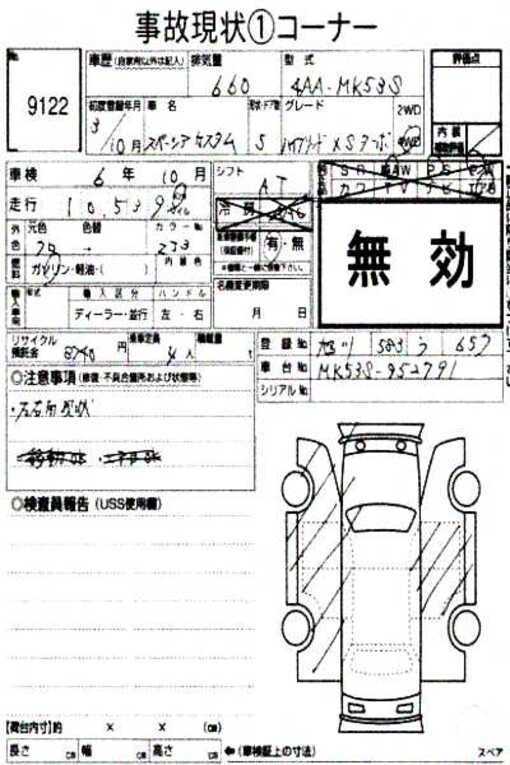 事故現状①コーナー
No.
9122
車歴(自家用以外は記入) 排気量 型式 評価点
660 4AA-MK53S
初度登録年月 車名 形状・ドア数 グレード 2WD
3/10月 スペーシアカスタム 5 ハイブリッドXSターボ 4WD
内装
車検 6年 10月 シフト AT
走行 10,539 km
S R AW P S
カワ T V ナビ エアB
冷房
外色 元色 色替 カラーNo.
クロ → ZJ3
有・無
(保証書付)
燃料 ガソリン・軽油・( ) 内装色
無効
名義変更期限
月 日
輸入車 年式 輸入区分 ハンドル
ディーラー・並行 左・右
リサイクル預託金 8740 円 乗車定員 4人 積載量 t
登録No. 旭川 583 う 657
車台No. MK53S-952791
シリアルNo.
○注意事項(修復・不具合箇所および状態等)
・左右前現状
移動OK
○検査員報告(USS使用欄)
【荷台内寸】約 × × (cm)
長さ cm 幅 cm 高さ cm ←(車検証上の寸法)
スペア